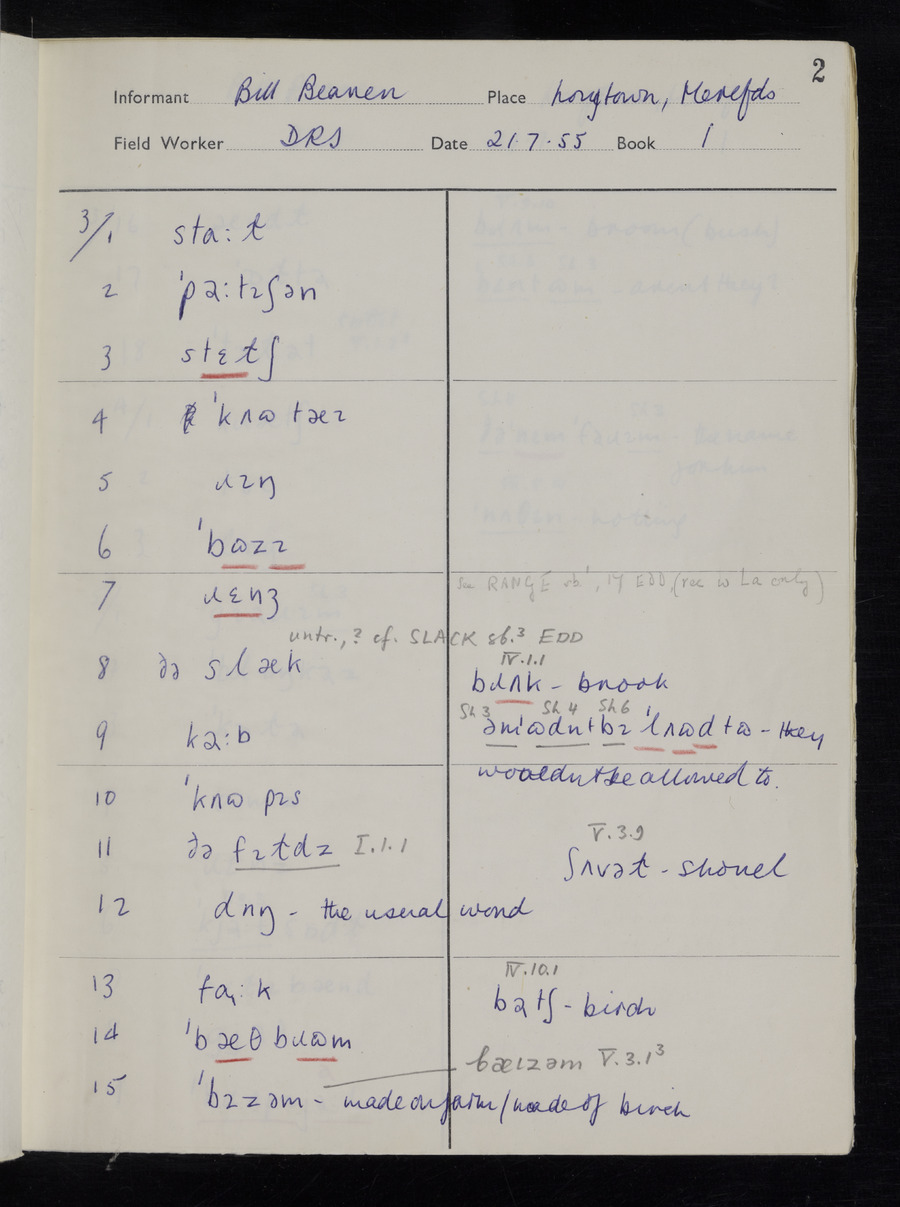 2
Informant Bill Beavan Place Longtown, Herefds
Field Worker DRS Date 21·7·55 Book 1
3/1 sta:t
2 ˈpəːtɪʃən
3 stɛtʃ
4 ˈkʌɷtæɪ
5 ɹɪŋ
6 ˈbɷzɪ
7 ɹɛnʒ see RANGE sb¹, 17 EDD, (rec w La only)
untr., ? cf. SLACK sb.³ EDD
8 ðə slæk
IV.1.1
bɹʌk - brook
9 kəːb
Sh 3 Sh 4 Sh 6
əmˈɷdntbɪ ˈlʌɷd tɷ - they
wouldn't be allowed to.
10 ˈkʌɷ pɪs
11 ðə fɪtdz I.1.1
V.3.9
ʃʌvət - shovel
12 dʌŋ - the usual word
13 fɑːk
IV.10.1
bətʃ - birch
14 ˈbæθ bɹɷm
bæɪzəm V.3.1³
15 ˈbɪzəm - made on farm/made of birch